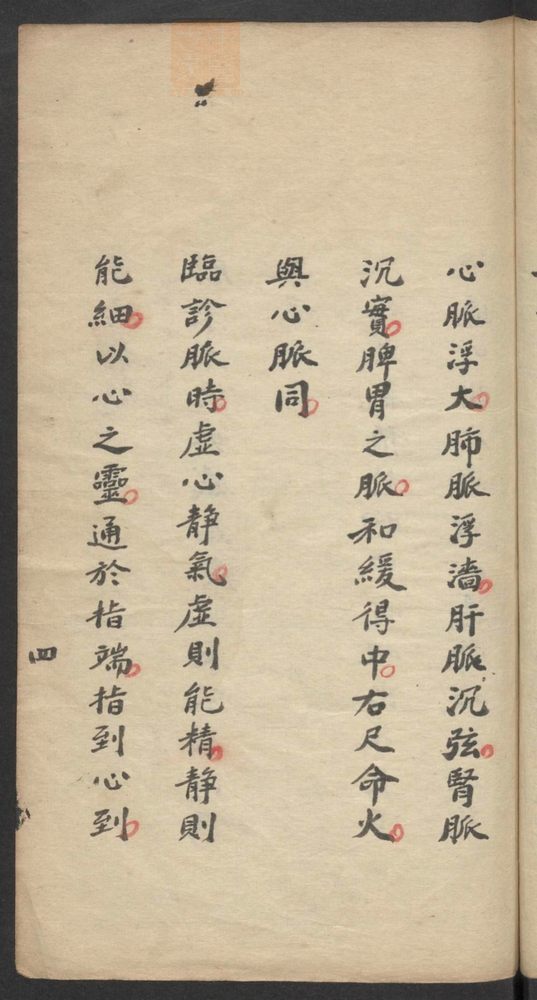 心脈浮大。肺脈浮濇。肝脈沉弦。腎脈
沉實。脾胃之脈。和緩得中。右尺命火。
與心脈同。
臨診脈時。虛心静氣。虛則能精。静則
能細。以心之靈。通於指端。指到心到。
四